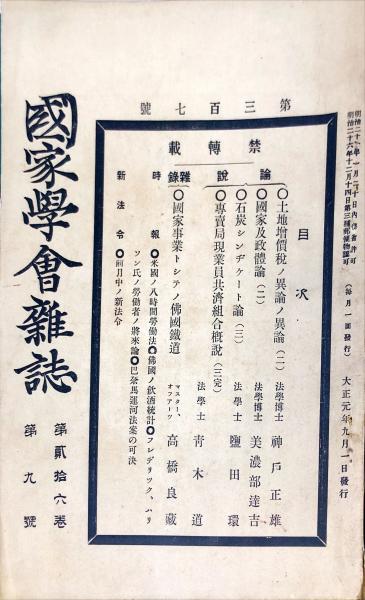 明治二十年一月二十日內務省許可
明治二十六年十二月十四日第三種郵便物認可
(每月一回發行)
大正元年九月一日發行
第三百七號
禁轉載
目次
論說
〇土地增價稅ノ異論ノ異論(二)
法學博士 神戶正雄
〇國家及政體論(二)
法學博士 美濃部達吉
〇石炭シンヂケート論(三)
法學士 鹽田環
〇專賣局現業員共濟組合概說(三完)
法學士 靑木道
雜錄
〇國家事業トシテノ佛國鐵道
マスター、オフ、アーツ 高橋良藏
時報
〇米國ノ八時間勞働法〇佛國ノ飮酒統計〇フレデリツク、ハリ
ソン氏ノ勞働者ノ將來論〇巴奈馬運河法案の可決
新法令
〇前月中ノ新法令
國家學會雜誌
第貳拾六卷
第九號